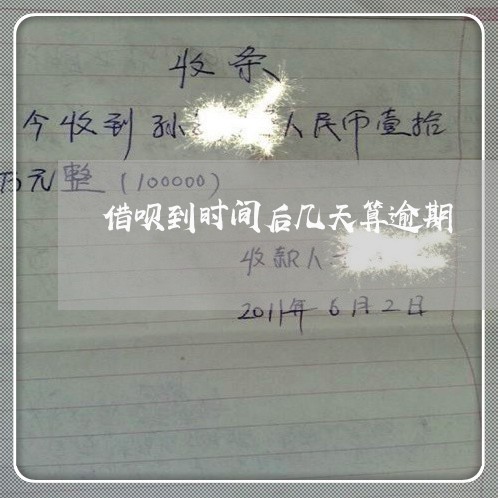 收条
今收到孙 人民币壹拾
万元整(100000)
借呗到时间后几天算逾期
收款人
2011年6月2日